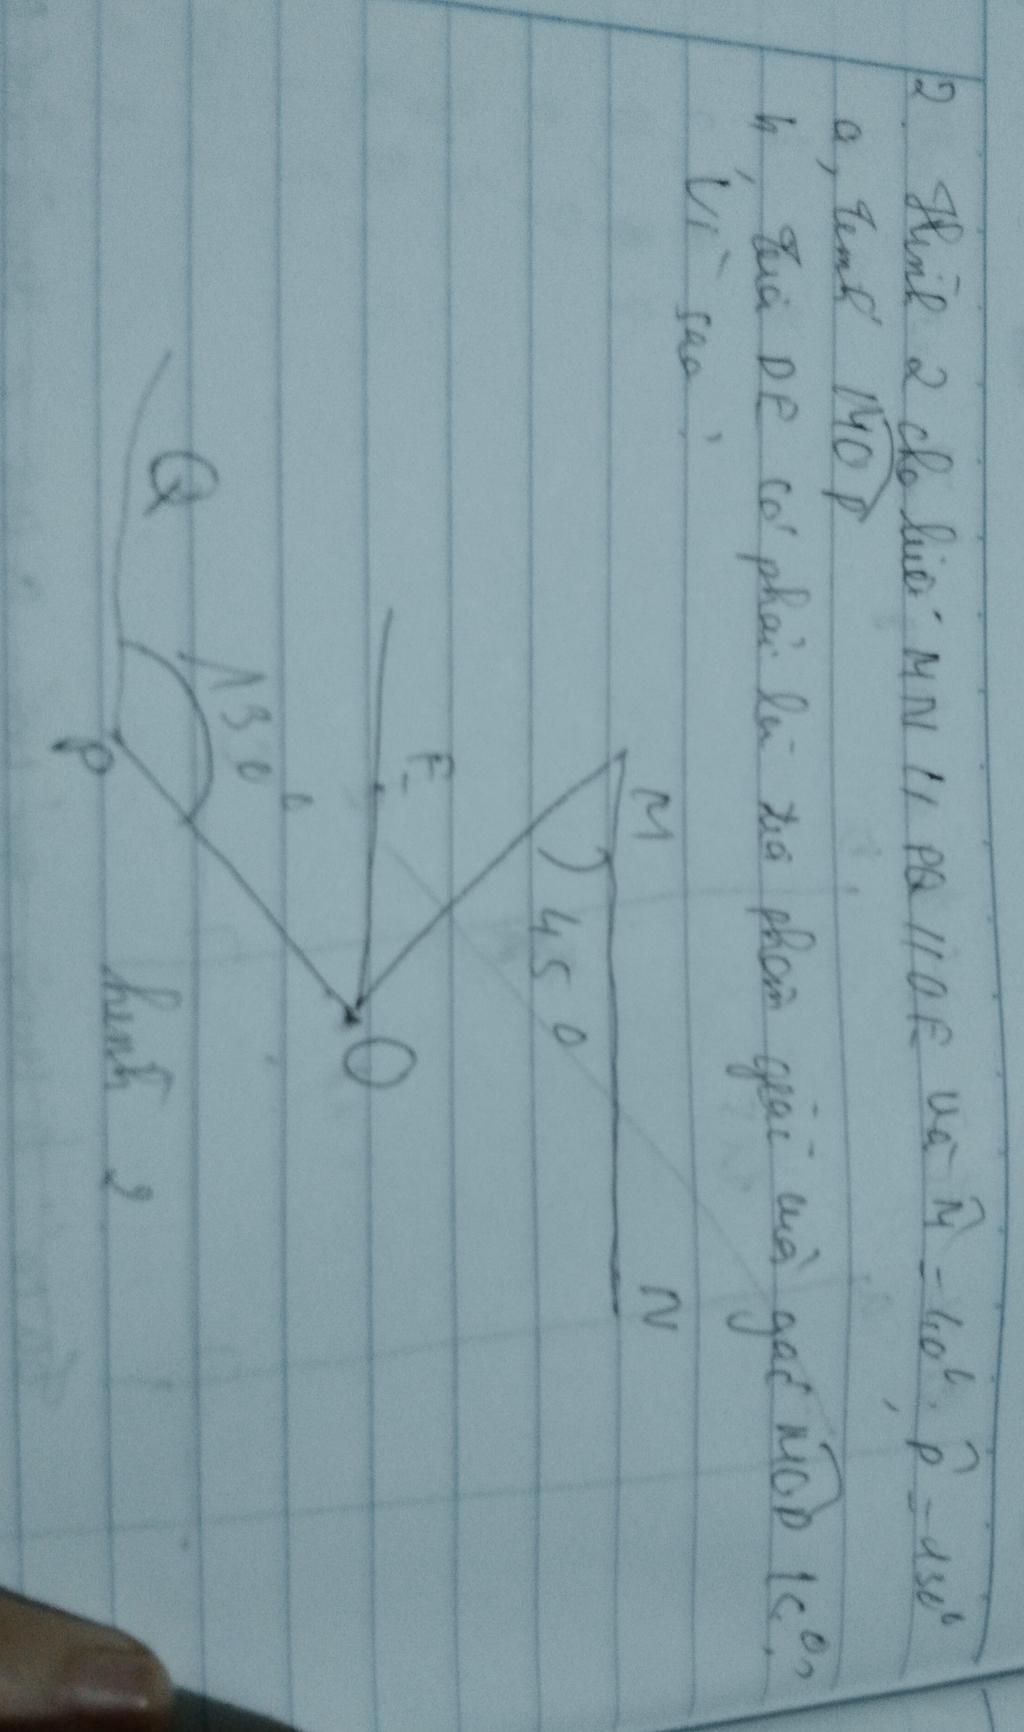 2. Hình 2 cho biết MN // PQ // OE và M̂ = 40°, P̂ = 130°
a, Tính MOP
b, Tia OE có phải là tia phân giác của góc MOP ko,
Vì sao?
M
N
45°
E
O
Q
130°
P
hình 2